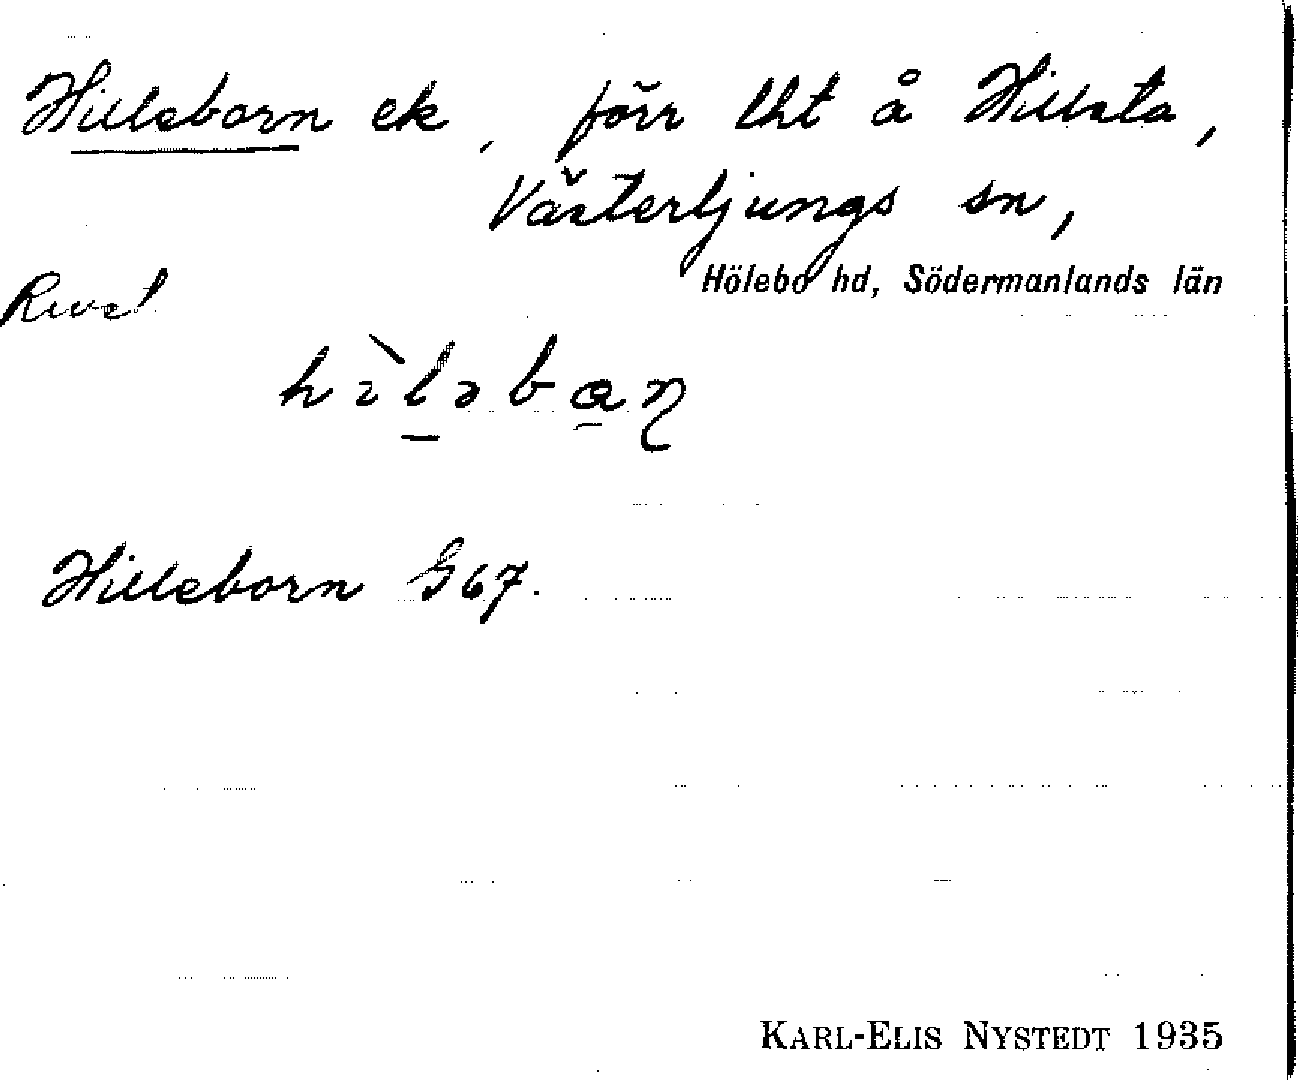 Hilleborn ek, förr lht å Hillsta,
Västerljungs sn,
Hölebo hd, Södermanlands län
Hilleborn G 67.
KARL-ELIS NYSTEDT 1935